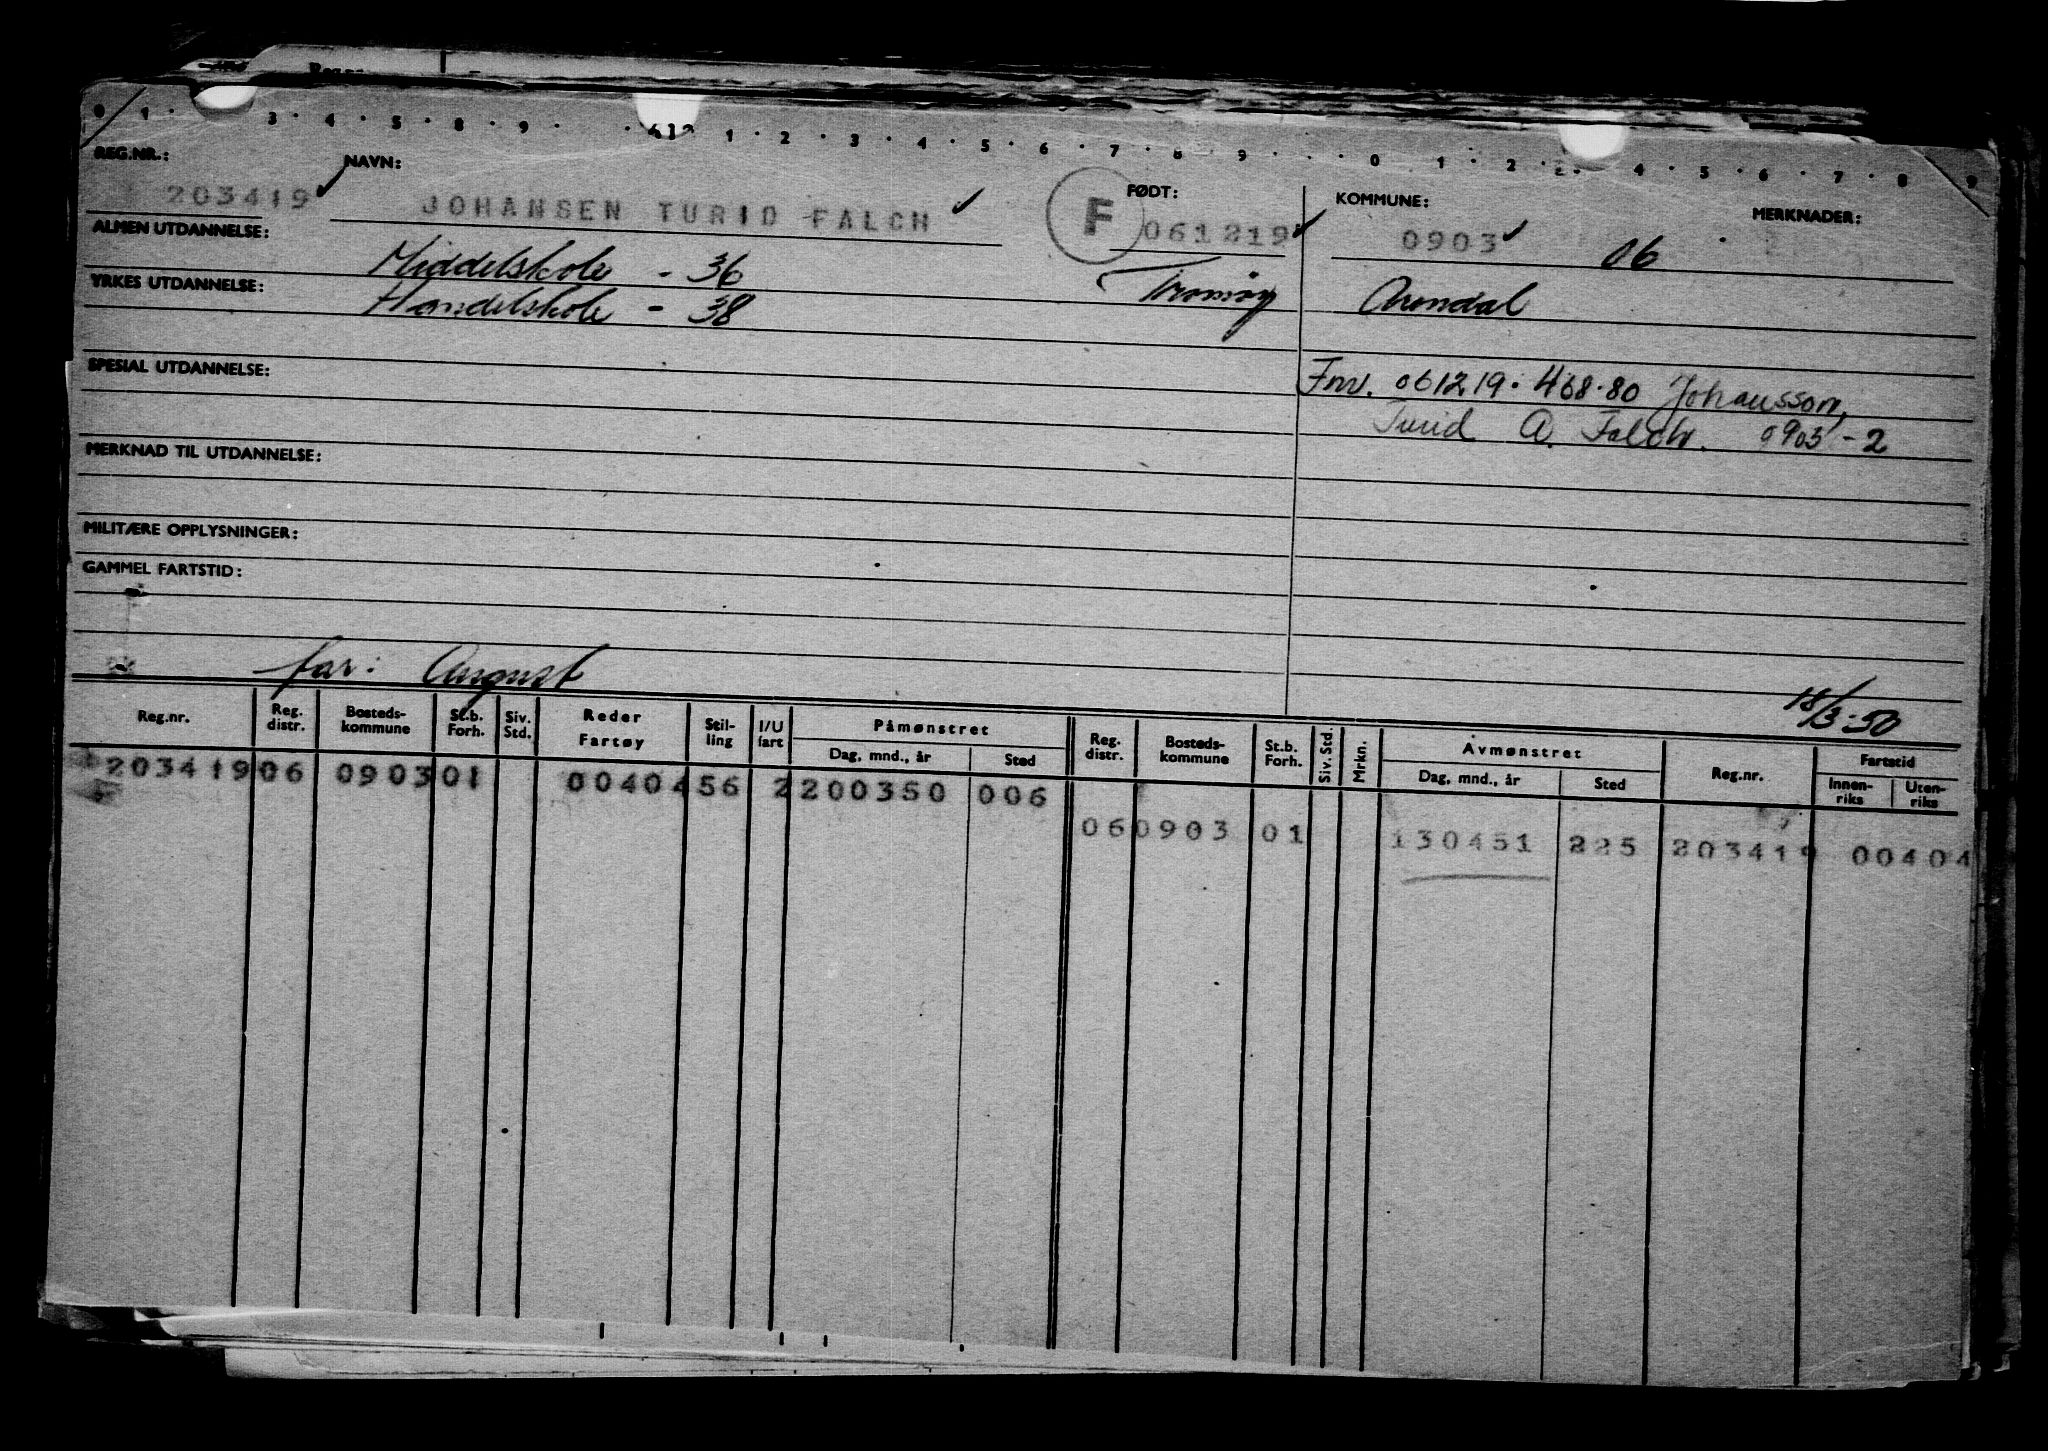 REG.NR.: NAVN: FØDT: KOMMUNE: MERKNADER:
203419 JOHANSEN TURID FALCH F 061219 0903 06
ALMEN UTDANNELSE: Middelskole - 36 Tromøy Arendal
YRKES UTDANNELSE: Handelskole - 38
SPESIAL UTDANNELSE: Fnr. 061219.468.80 Johansson,
Turid A. Falch. 0903 - 2
MERKNAD TIL UTDANNELSE:
MILITÆRE OPPLYSNINGER:
GAMMEL FARTSTID:
far: August 18/3-50
Reg.nr. Reg. distr. Bosteds-kommune St.b. Forh. Siv. Std. Reder Fartøy Stil-ling I/U fart Påmønstret Dag, mnd., år Sted Reg. distr. Bosteds-kommune St.b. Forh. Siv. Std. Mrkn. Avmønstret Dag, mnd., år Sted Reg.nr. Fartstid Innen-riks Uten-riks
203419 06 0903 01 00404 56 2 200350 006
06 0903 01 130451 225 203419 00404